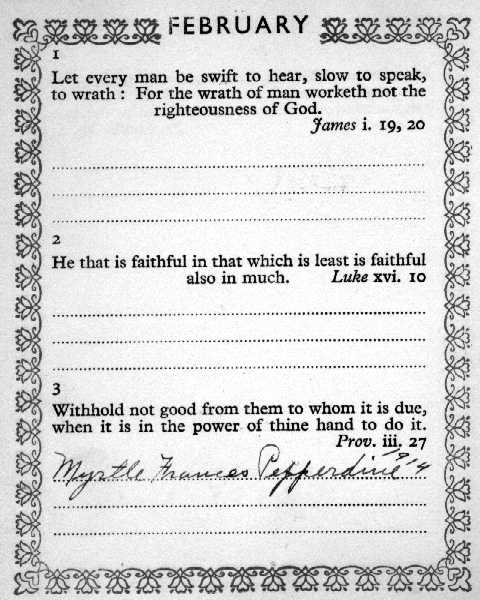 FEBRUARY
1
Let every man be swift to hear, slow to speak,
to wrath : For the wrath of man worketh not the
righteousness of God.
James i. 19, 20
2
He that is faithful in that which is least is faithful
also in much. Luke xvi. 10
3
Withhold not good from them to whom it is due,
when it is in the power of thine hand to do it.
Prov. iii. 27
Myrtle Frances Pepperdine